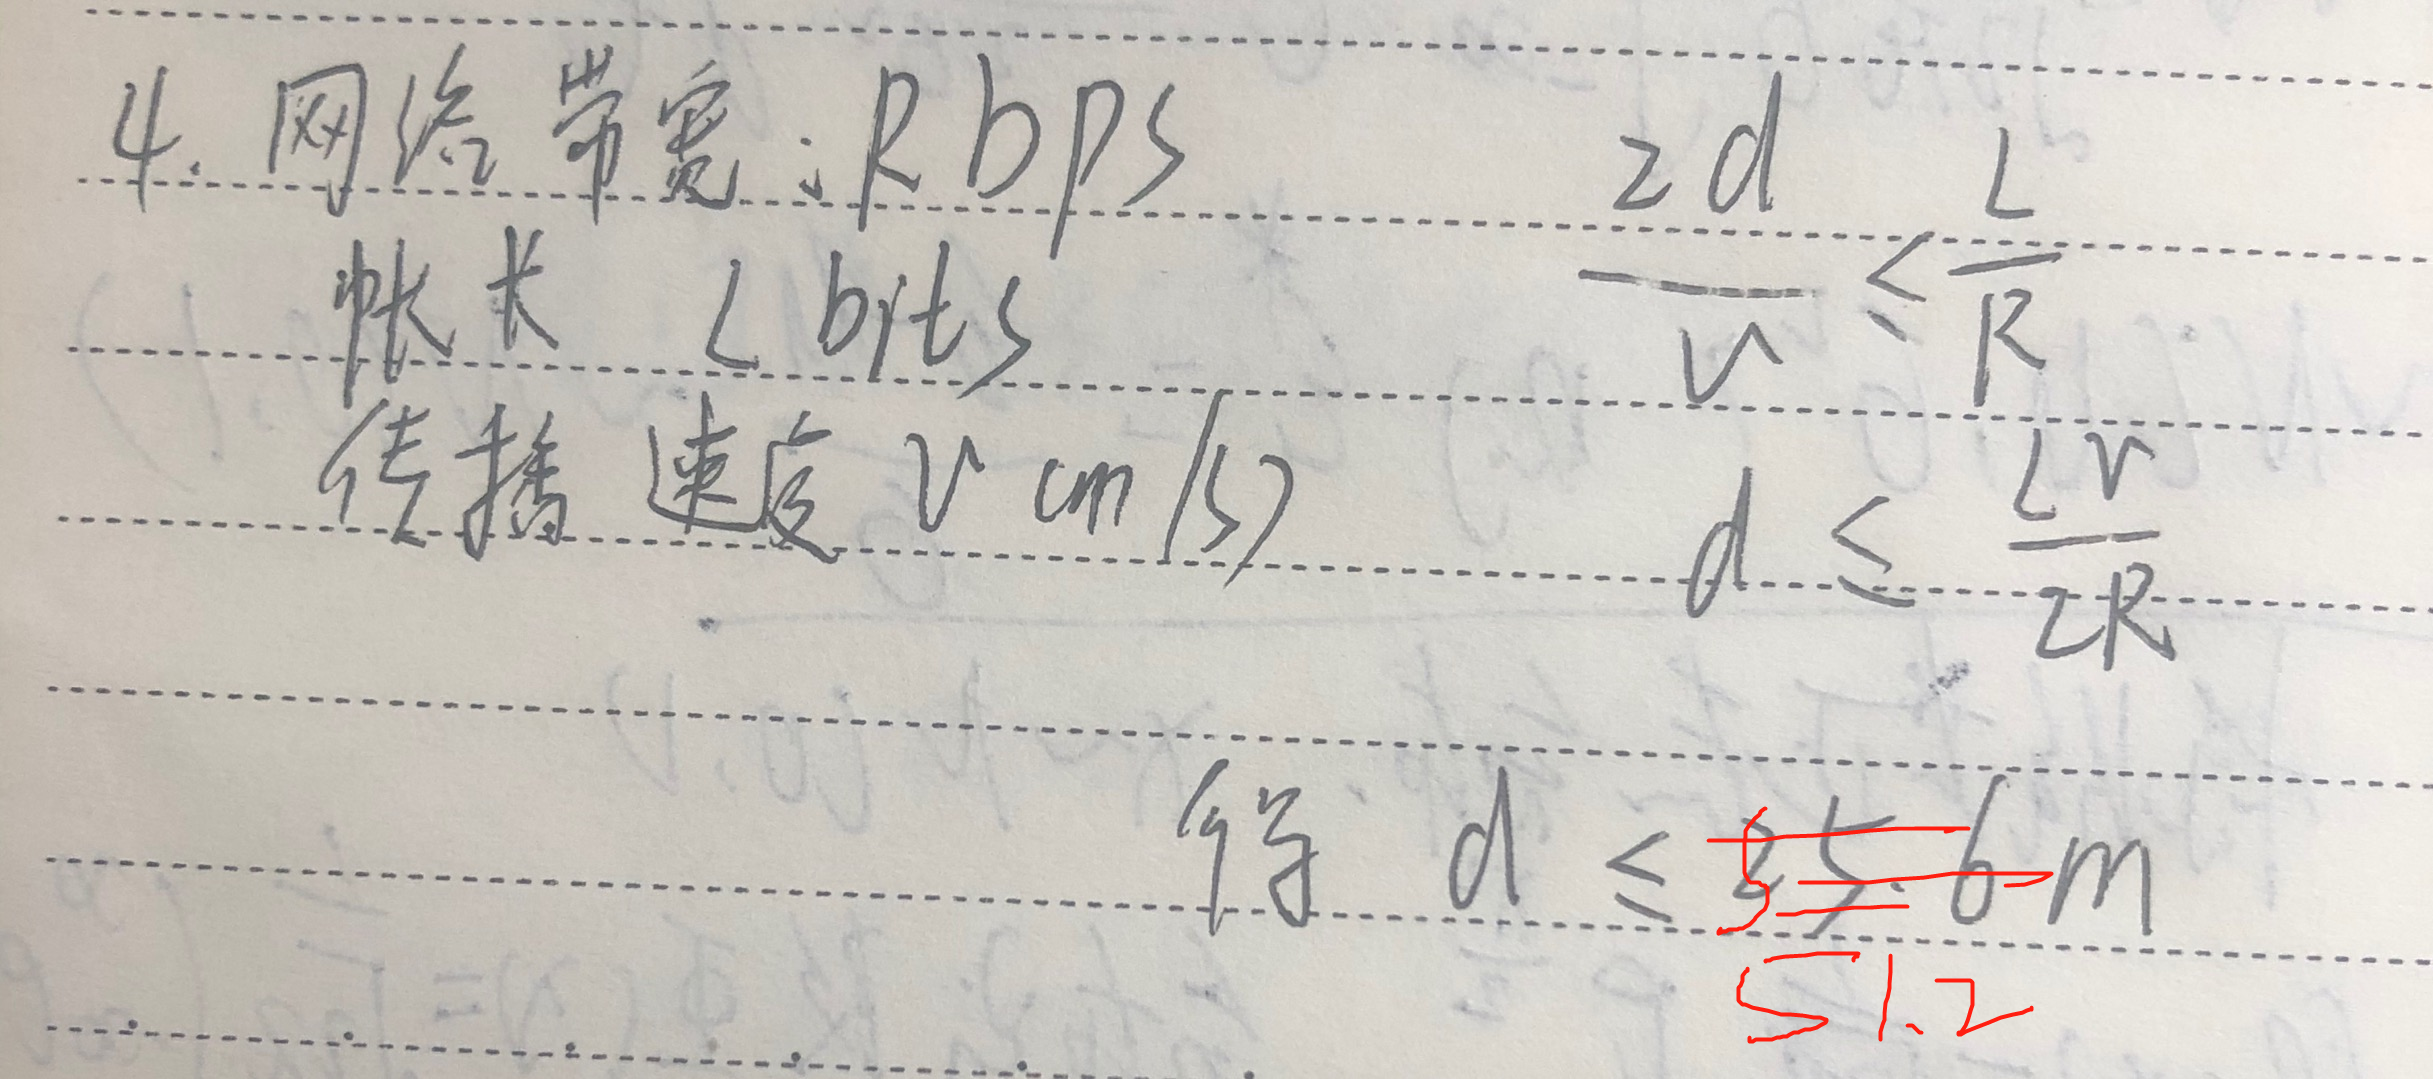 4. 网络带宽:R bps
帐长 L bits
传播速度 v cm/(s)
2d/v ≤ L/R
d ≤ Lv/2R
得 d ≤ 25.6m
51.2